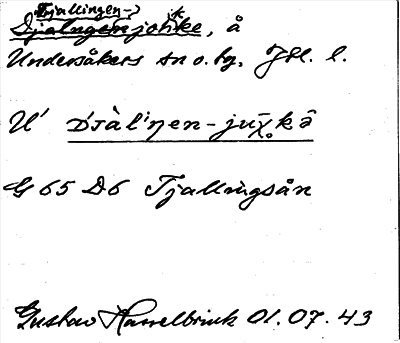 Tjallingen-
Djalngenjohke, å
Undersåkers sn o. bg. Jtl. l.
U' Djàlˈŋen-juχ̄.kə̂
G 65 D6 Tjallingsån
Gustav Hasselbrink 01.07.43